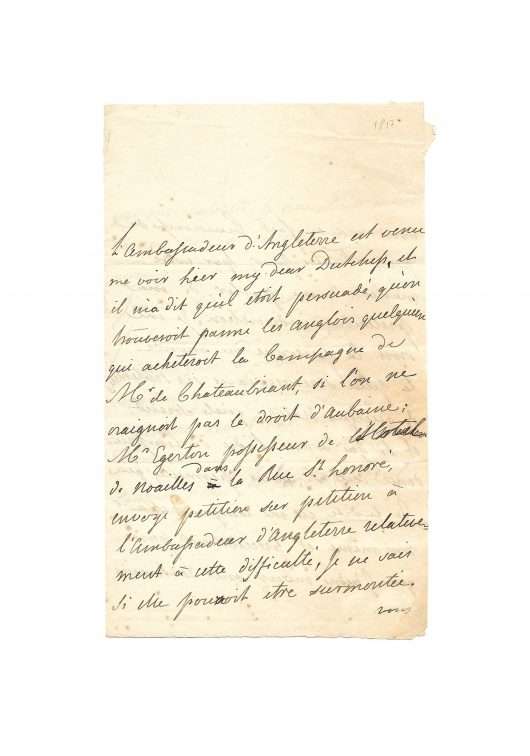 1817
L'ambassadeur d'Angleterre est venu
me voir hier my dear Dutchess, et
il m'a dit qu'il etoit persuadé, qu'on
trouveroit parmi les anglois quelqu'un
qui acheteroit la Campagne de
Mr de Chateaubriant, si l'on ne
craignoit pas le droit d'aubaine;
Mr Egerton possesseur de
de Noailles dans la Rue St honoré,
envoye petition sur petition à
l'ambassadeur d'Angleterre relative-
ment à cette difficulté, Je ne sais
si elle pouroit etre surmontée.
vous